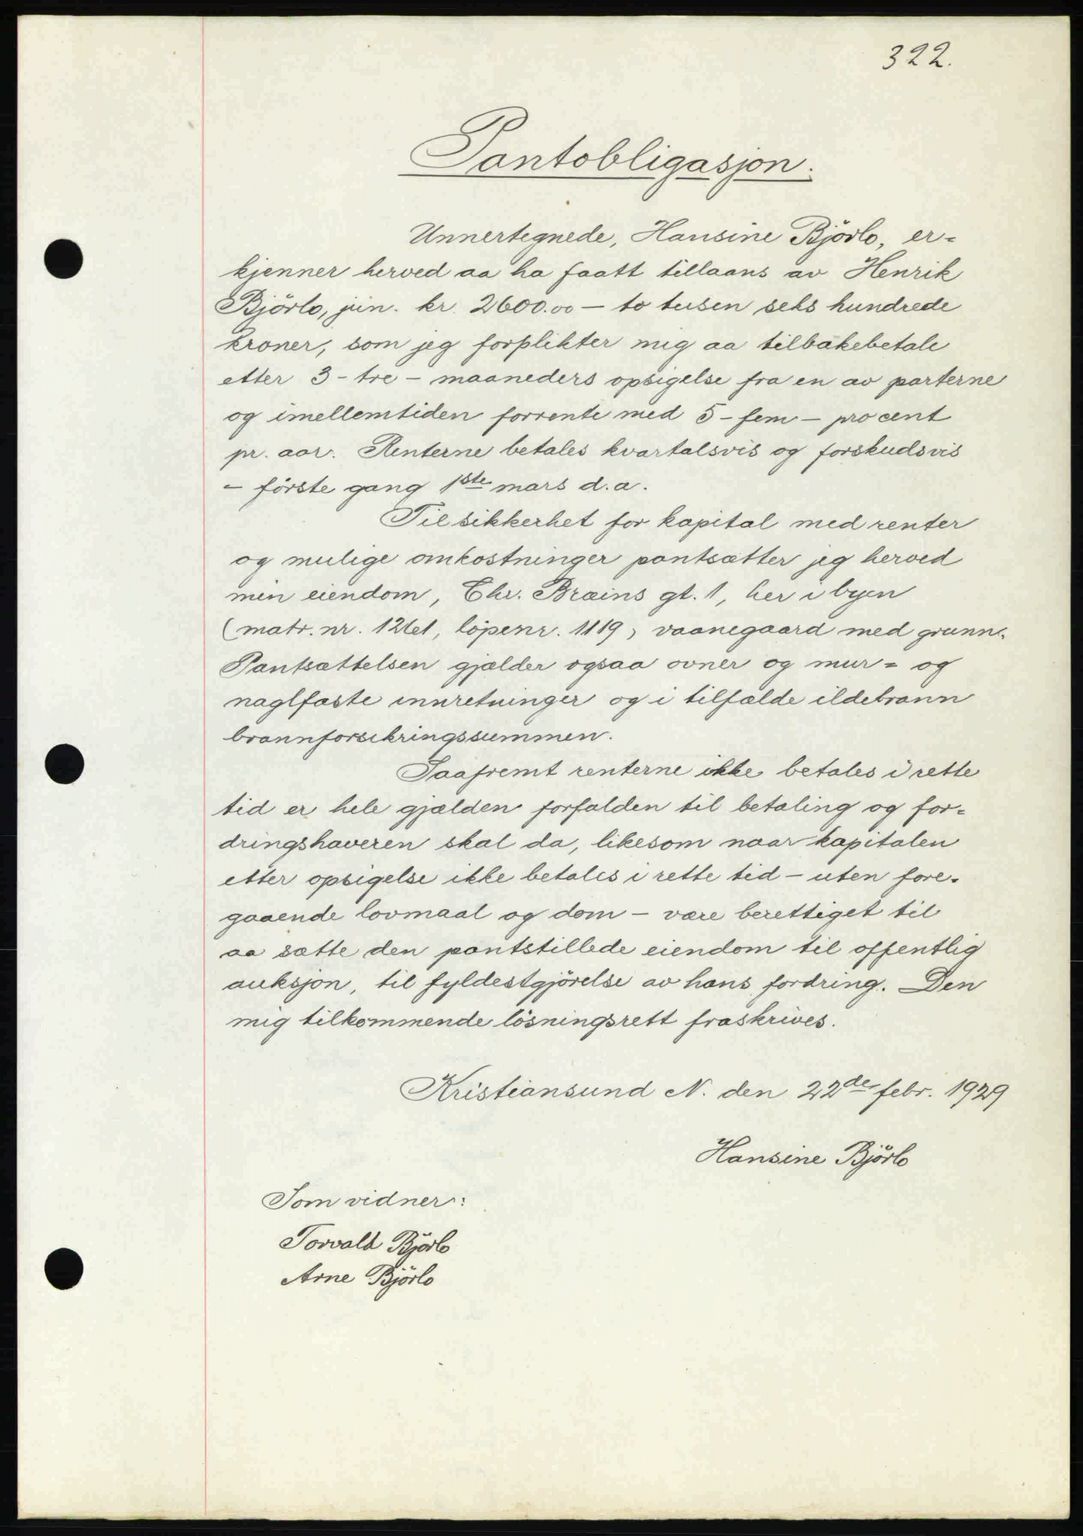 322.
Pantobligasjon.
Unnertegnede, Hansine Björlo, er=
kjenner herved aa ha faatt tillaans av Henrik
Björlo, jun. kr. 2600.00 — to tusen seks hundrede
kroner, som jeg forplikter mig aa tilbakebetale
etter 3 - tre - maaneders opsigelse fra en av parterne
og imellemtiden forrente med 5 - fem - procent
pr. aar. Renterne betales kvartalsvis og forskudsvis
- förste gang 1ste mars d.a.
Til sikkerhet for kapital med renter
og mulige omkostninger pantsætter jeg herved
min eiendom, Chr. Bræins gt. 1, her i byen
(matr. nr. löpenr. 1119) vaanegaard med grunn.
Pantsættelsen gjælder ogsaa ovner og mur= og
naglfaste innretninger og i tilfælde ildebrann
brannforsikringssummen.
Saafremt renterne ikke betales i rette
tid er hele gjælden forfalden til betaling og for=
dringshaveren skal da, likesom naar kapitalen
etter opsigelse ikke betales i rette tid - uten fore=
gaaende lovmaal og dom - være berettiget til
aa sætte den pantstillede eiendom til offentlig
auksjon, til fyldestgjörelse av hans fordring. Den
mig tilkommende lösningsrett fraskrives.
Kristiansund N. den 22de febr. 1929
Hansine Björlo
Som vidner:
Torvald Björlo
Arne Björlo